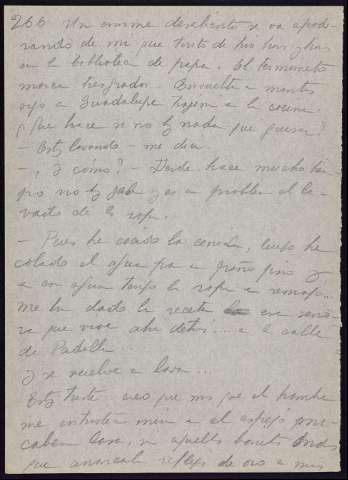 266 Un enorme desaliento se va apode-
rando de mí que tirito de frío
en la biblioteca de papá. El termómetro
marca tres grados. Envuelta en mantas
oigo a Guadalupe trajinar en la cocina.
¿Qué hace si no hay nada que guisar?
— Estoy lavando — me dice.
— ¿Y cómo? — Desde hace mucho tiem-
po no hay jabón y es un problema el la-
varse de la ropa.
— Pues he cocido la ceniza, luego he
colado el agua por un paño fino y
en esa agua tengo la ropa a remojo...
Me ha dado la receta esa seño-
ra que vive ahí detrás... en la calle
de Padilla...
Y se vuelve a lavar...
Estoy triste, creo que más que el hambre
me entristece verme en el espejo
cabeza, sin aquellas bonitas ondas
que arrancaban reflejos de oro a mis